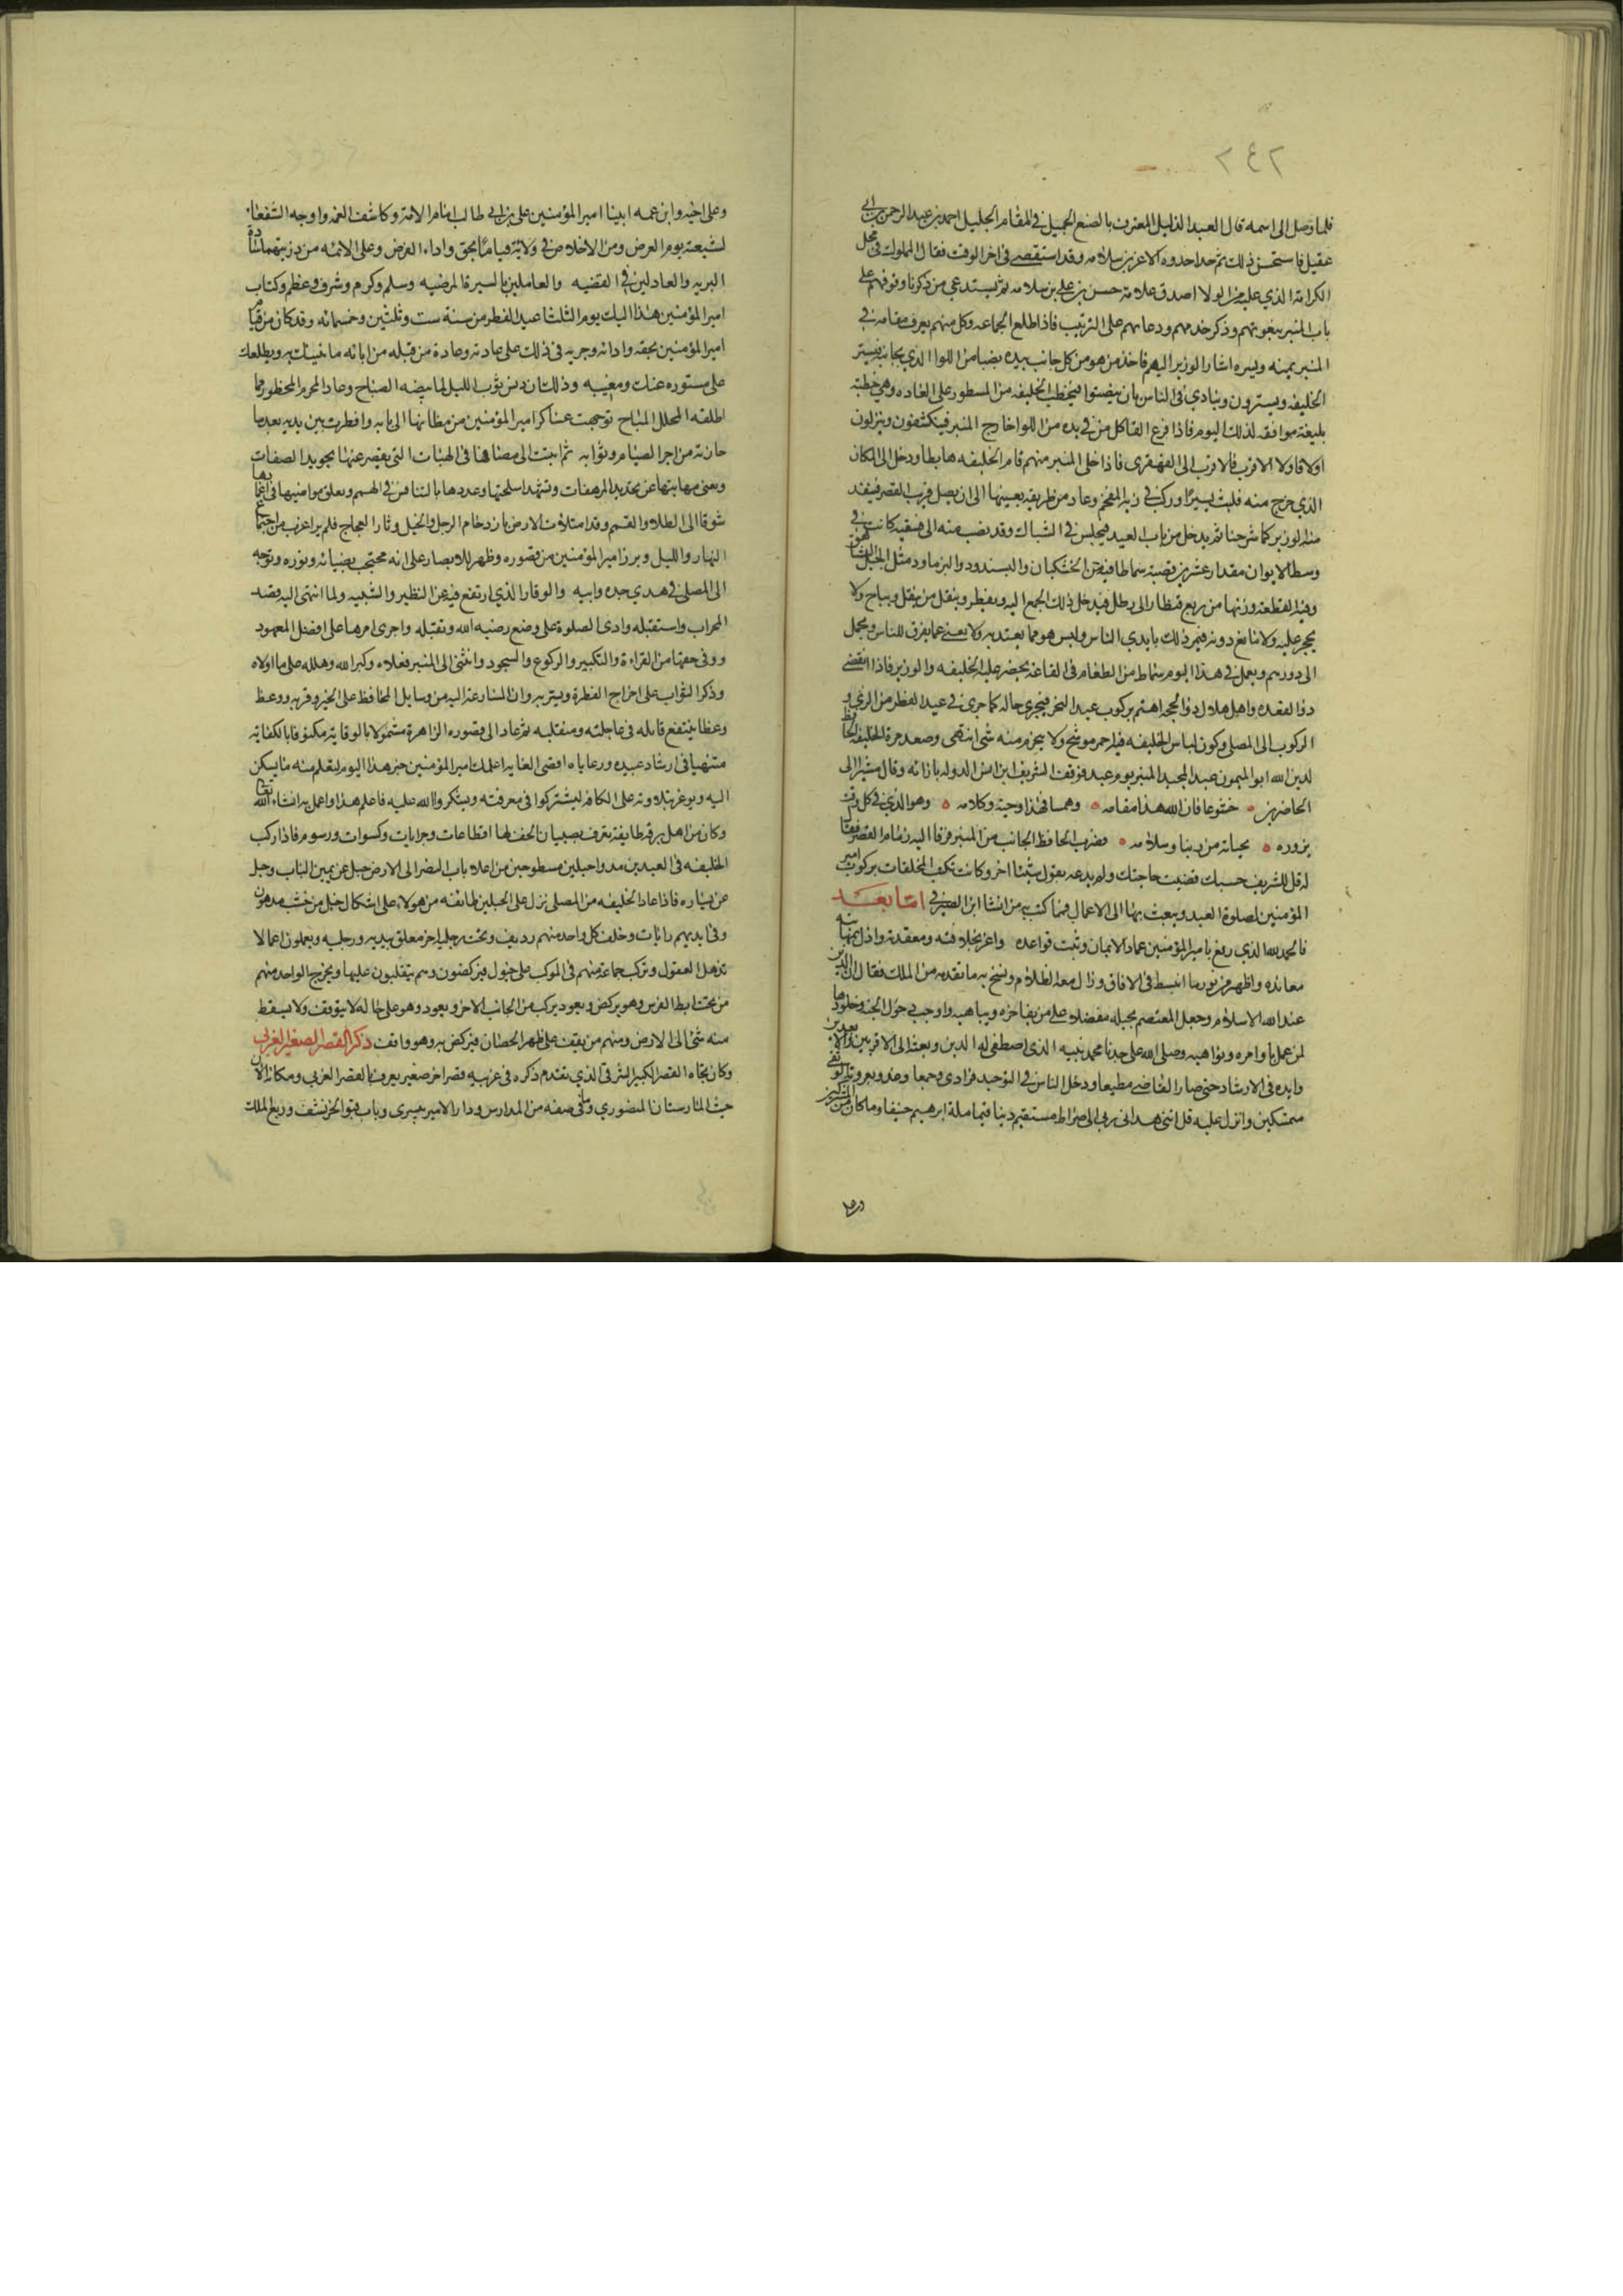 ٢٤٢
فلما وصل الى اسمه قال العبد الذليل المعترف بالصنع الجميل في المقام الجليل احمد بن عبد الرحمن بن ابي
عقيل فاستحسن ذلك ثم حذا حذوه الاعز بن سلامه وقد استقصي في اخر الوقت فقال المملوك في محل
الكرامة الذي عليه من الولا اصدق علامة حسن بن علي بن سلامه ثم يستدعي من ذكرنا وقوفهم على
باب المنبر بنعوتهم وذكر خدمهم ودعايهم على الترتيب فاذا طلع الجماعه وكل منهم يعرف مقامه في
المنبر يمنه ويسره اشار الوزير اليهم فاخذ من هو من كل جانب بيده نصيبا من اللوا الذي بجانبه فيستر
الخليفه ويسترون وينادي في الناس بان ينصتوا فيخطب الخليفه من المسطور على العاده وهي خطبة
بليغة موافقه لذلك اليوم فاذا فرغ القا كل من في يده من اللوا خارج المنبر فينكشفون وينزلون
اولا فاولا الاقرب فالاقرب الى القهقرى فاذا خلى المنبر منهم قام الخليفه هابطا ودخل الى المكان
الذي خرج منه فلبث يسيرا وركب في زيه المفخم وعاد من طريقه بعينها الى ان يصل قريب القصر فيتقدمه
الوزير كما شرحنا ثم يدخل من باب العيد فيجلس في الشباك وقد نصب منه الى فسقيه كانت في
وسط الايوان مقدار عشرين قصبة سماط فيه من الخشكنان والبسندود والبزماورد مثل الجبل الشاهق
وفيه القطعة وزنها من ربع قنطار الى رطل فيدخل ذلك الجمع اليه ويفطر وينقل من ينقل ويباح ولا
يحجر عليه ولا مانع دونه فيمر ذلك بايدي الناس وليس هو مما يعتد به ولا يعني عما يفرق للناس ويحمل
الى دورهم ويعمل في هذا اليوم سماط من الطعام في القاعة يحضر عليه الخليفه والوزير فاذا انقضى
ذو القعده واهل هلال ذو الحجه اهتم بركوب عيد النحر فيجري حاله كما جرى في عيد الفطر من الزي و
الركوب الى المصلى وكون لباس الخليفه فيه احمر موشح ولا يخرم منه شي انتهى وصعد مرة الخليفه الحافظ
لدين الله ابو الميمون عبد المجيد المنبر يوم عيد فوقف الشريف ابن انس الدوله بازائه وقال مشيرا الى
الحاضرين خشوعا فان الله هذا مقامه وهمسا فهذا وجهه وكلامه وهو الذي في كل وقت
بروزه تحياته من ربنا وسلامه فضرب الحافظ الجانب من المنبر فرقا اليه زمام القصر فقال
له قل للشريف حسبك قضيت حاجتك ولم يدعه يقول شيئا اخر وكانت تكتب المخلقات بركوب امير
المؤمنين لصلوة العيد ويبعث بها الى الاعمال فمما كتب به من انشا ابن الصيرفي اما بعد
فالحمد لله الذي رفع بامير المؤمنين عماد الايمان وثبت قواعده واعز بخلافته ومعتقده واذل بمهابته
معانده واظهر من نوره ما انبسط في الافاق وزال معه الظلام ونسخ به ما تقدمه من الملل فقال ان الدين
عند الله الاسلام وجعل المعتصم بحبله مفضلا على من يفاخره ويباهيه واوجب دخول الجنة وخلودها
لمن عمل باوامره ونواهيه وصلى الله على جدنا محمد نبيه الذي اصطفى له الدين وبعثه الى الاقربين والابعدين
وايده في الارشاد حتى صار العاصي مطيعا ودخل الناس في التوحيد فرادى وجمعا وغدوا بعروته الوثقى
متمسكين وانزل عليه قل انني هداني ربي الى صراط مستقيم دينا قيما ملة ابرهيم حنيفا وما كان من المشركين
وعلى اخيه وابن عمه ابينا امير المؤمنين علي بن ابي طالب امام الامة وكاشف الغمه واوجه الشفعاء
لشيعته يوم العرض ومن الاخلاص في ولايته قيام بحق واداء الفرض وعلى الائمه من ذريتهما سادة
البريه والعادلين في القضيه والعاملين بالسيرة المرضيه وسلم وكرم وشرف وعظم وكتاب
امير المؤمنين هذا اليك يوم الثلثا عيد الفطر من سنة ست وثلثين وخمسمائه وقد كان من قيام
امير المؤمنين بحقه وادائه وجريه في ذلك على عادته وعادة من قبله من ابائه ما ننبئك به ويطلعك
على مستوره عنك ومغيبه وذلك ان دنس ثوب الليل لما بيضه الصباح وعاد المحرم المحظور بما
اطلقه المحلل المباح توجهت عساكر امير المؤمنين من مظانها الى بابه وافطرت بين يديه بعد ما
حازته من اجر الصيام وثوابه ثم انثنت الى مصافها في الهيات التي يقصر عنها تجويد الصفات
وتغني مهابتها عن تجريد المرهفات وتشهد اسلحتها وعددها بالتنافس في الهمم وتعلق مواضيها في اغمادها
شوقا الى الطلا والقمم وقد امتلات الارض بازدحام الرجل والخيل وثار العجاج فلم ير اغرب من اجتماع
النهار والليل وبرز امير المؤمنين من قصوره وظهر للابصار على انه محتجب بضيائه ونوره وتوجه
الى المصلى في هدي جده وابيه والوقار الذي ارتفع فيه عن النظير والشبيه ولما انتهى اليه قصد
المحراب واستقبله وادى الصلوة على وضع رضيه الله وتقبله واجرى امرها على افضل المعهود
ووفى حقها من القراءة والتكبير والركوع والسجود وانثنى الى المنبر فعلاه وكبر الله وهلله على ما اولاه
وذكر الثواب على اخراج الفطرة وبشر به وان المسارعة اليه من وسايل المحافظ على الخير وقربه ووعظ
وعظا ينتفع قابله في عاجلته ومنقلبه ثم عاد الى قصوره الزاهرة مشمولا بالوقاية مكنوفا بالكفاية
منتهيا في ارشاد عبيده ورعاياه اقصى الغاية اعلمك امير المؤمنين خبر هذا اليوم لتعلم منه ما يسكن
اليه وتوعز بتلاوته على الكافه ليشتركوا في معرفته ويشكروا الله عليه فاعلم هذا واعمل به ان شاء الله تعالى
وكان من اهل برقه طايفة تعرف بصبيان الخف لها اقطاعات وجرايات وكسوات ورسوم فاذا ركب
الخليفه في العيدين مدوا حبلين مسطوحين من اعلا باب النصر الى الارض حبل عن يمين الباب وحبل
عن يساره فاذا عاد الخليفه من المصلى نزل على الحبلين طائفه من هولاء على اشكال خيل من خشب مدهون
وفي ايديهم رايات وخلف كل واحد منهم رديف وتحت رجليه اخر معلق بيديه ورجليه ويعملون اعمالا
تذهل العقول وتركب جماعة منهم في الموكب على خيول فيركضون وهم يتقلبون عليها ويخرج الواحد منهم
من تحت ابط الفرس وهو يركض ويعود يركب من الجانب الاخر ويعود وهو على حاله لا يتوقف ولا يسقط
منه شي الى الارض ومنهم من يقف على ظهر الحصان فيركض به وهو واقف ذكر القصر الصغير الغربي
وكان تجاه القصر الكبير الشرقي الذي تقدم ذكره في غربيه قصر اخر صغير يعرف بالقصر الغربي ومكانه الان
حيث المارستان المنصوري وما في صفه من المدارس ودار الامير بيسري وباب قبو الخرنشف وربع الملك